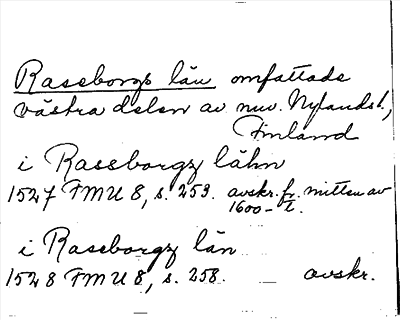 Raseborgs län omfattade
västra delen av nuv. Nylands l.,
Finland
i Rassborgz lähn
1527 FMU 8, s. 253. avskr. fr. mitten av
1600-t.
i Rassborgz län
1528 FMU 8, s. 258. avskr.